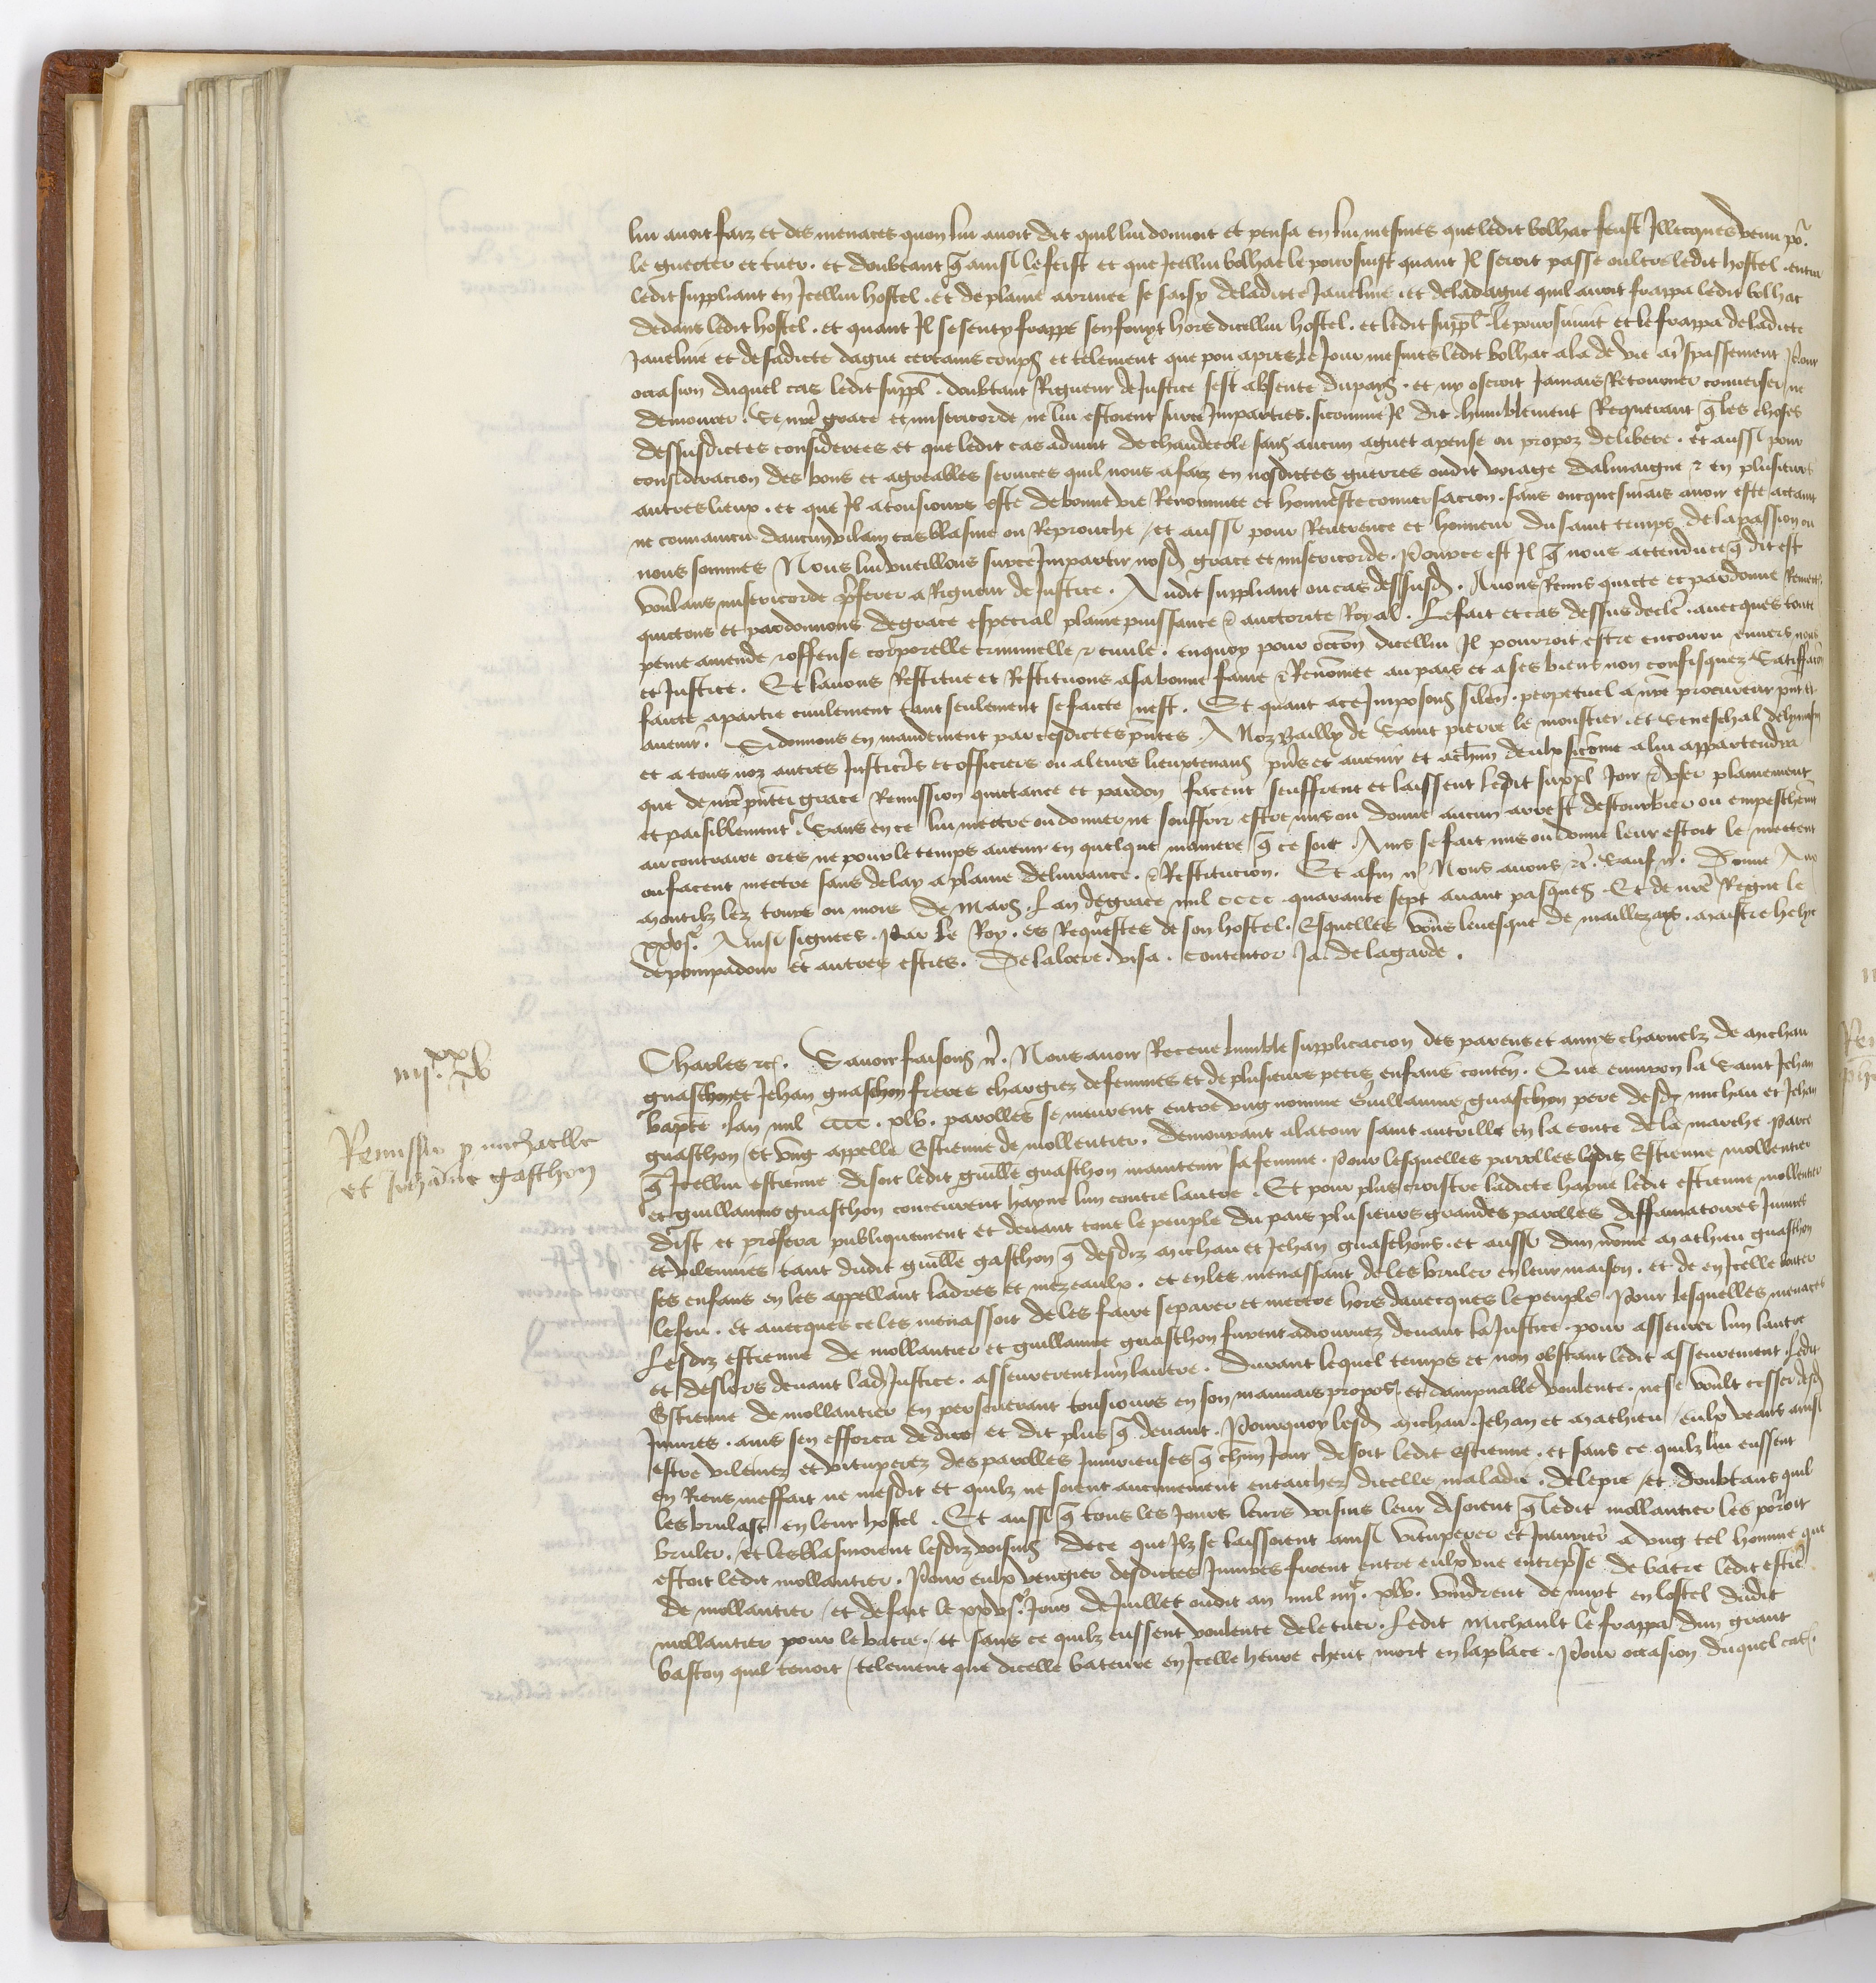 lui avoit faiz et des menaces quon lui avoit dit quil lui donnoit et pensa en lui mesmes que ledit bolhac feust Illecques venu po.r
le guecter et tuer. et doubtant q ainsi le feist et que Icellui bolhac le poursuist quant Il seroit passe oultre ledit hostel. entra
ledit suppliant en Icellui hostel. et de plaine arrivee se saisy de ladicte Javeline. et de la dague quil avoit frappa ledit bolhac
dedans ledit hostel. et quant Il se senty frappe sen fouyt hors dicellui hostel. et ledit suppl. le poursuivit et le frappa de ladicte
Javeline et de sadicte dague certains coups et telement que pou apres le Jour mesmes ledit bolhac ala de vie a trspassement Pour
occasion duquel cas ledit suppl. doubtant Rigueur de Justice sest absente du pays. et ny oseroit Jamais Retourner converser ne
demourer. Se nre grace et misericorde ne lui estoient sur ce Imparties. sicomme Il dit humblement Requerant q les choses
dessusdictes considerees et que ledit cas advint de chaudecole sans aucun aguet apense ou propoz delibere. et aussi pour
consideracion des bons et agreables services quil nous a faiz en nosdictes guerres oudit voiage dalmaigne & en plusieurs
autres lieux. et que Il a tousiours este de bonne vie Renommee et honneste conversacion. sans oncquesmais avoir este actaint
ne convaincu daucun vilain cas blasme ou Reprouche / et aussi pour Reverence et honneur du saint temps de la passion ou
nous sommes Nous lui vueillons sur ce Impartir nosd. grace et misericorde. Pource est Il q nous attendu ce q dit est
voulans misericorde pferer a Rigueur de Justice. Audit suppliant ou cas dessusd. Avons Remis quicte et pardonne Remect.
quictons et pardonnons de grace especial plaine puissance & auctorite Royal. Le fait et cas dessus decle. avecques toute
peine amende & offense corporelle criminelle & civile. en quoy pour occon dicellui Il pourroit estre encouru envers nous
et Justice. Et lavons Restitue et Restituons a sa bonne fame & Renomee au pais et a ses biens non confisquez Satiffacon
faicte a partie civilement tant seulement se faicte nest. Et quant a ce Imposons silen. perpetuel a nre procureur pnt et
avenir. Si donnons en mandement par cesdictes pntes. A Noz Bailly de Saint pierre le moustier. et Seneschal de lymosin
et a tous noz autres Justiciers et officiers ou a leurs lieuxtenans pns et avenir et a chun deulx sicome a lui appartendra
que de nre pnte grace Remission quictance et pardon facent seuffrent et laissent ledit suppl Joir & user plainement
et paisiblement. Sans en ce lui mectre ou donner ne souffrir estre mis ou donne aucun arrest destourbier ou empeschent
au contraire ores ne pour le temps avenir en quelque maniere q ce soit. Ains se fait mis ou donne leur estoit le mectent
ou facent mectre sans delay a plaine delivrance. & Restitucion. Et afin & Nous avons &. Sauf &. Donne Aux
montilz lez tours ou mois de Mars. Lan de grace mil cccc quarante sept avant pasques. Et de nre Regne le
xxvj.e Ainsi signees. Par le Roy. es Requestes de son hostel. Esquelles vous levesque de maillezays. maistre helye
de pompadour et autres esties. Delaloere. visa. contentor Ja. de la garde.
iiij.xx xv
Remissio p michaelle
et Johanne gasthon
Charles &c. Savoir faisons &. Nous avoir Receue lumble supplicacion des parens et amys charnelz de michau
guasthon et Jehan guasthon freres chargiez de femmes et de plusieurs petis enfans conten. Que environ la Saint Jehan
bapte. lan mil cccc. xlv. parolles se meurent entre ung nomme Guillaume guasthon pere desd. michau et Jehan
guasthon / et ung appelle Estienne de mollentier. demourant a la tour saint autrille en la conte de la marche. Parce
q Icellui estienne disoit ledit guille guasthon maintenir sa femme. Pour lesquelles parolles lesdiz Estienne mollentier
et guillaume guasthon conceurent hayne lun contre lautre. Et pour plus croistre ladicte hayne ledit estienne mollentier
dist et profera publiquement et devant tout le peuple du pais plusieurs grandes parolles diffamatoires Injures
et vilennies tant dudit guille gasthon q desdiz michau et Jehan guasthons. et aussi dun nome mathieu guasthon
ses enfans en les appellant ladres et mezeaulx. et en les menassant de les bruler en leur maison. et de en Icelle bouter
le feu. et avecques ce les menassoit de les faire separer et mectre hors davecques le peuple Pour lesquelles menaces
Lesdiz estienne de mollantier et guillaume guasthon furent adiournez devant la Justice. pour asseurer lun lautre
et deslors devant lad. Justice. asseurerent lun lautre. Durant lequel temps et non obstant ledit asseurement. Ledit
Estienne de mollantier en perseverant tousiours en son mauvais propos. et dampnable voulente. ne se voult cesser desd.
Injures. ains sen efforca de dire et dit plus q devant. Pourquoy lesd. michau. Jehan et mathieu / eulx veans ainsi
estre vilenez et vituperez des parolles Injurieuses q chun Jour disoit ledit Estienne. et sans ce quilz lui eussent
en Riens meffait ne mesdit et quilz ne soient aucunement entaichez dicelle maladie. de lepre / et doubtans quil
les brulast en leur hostel. Et aussi q tous les Jours leurs voisins leur disoient q ledit mollantier les poroit
bruler. / et les blasmoient lesdiz voisins de ce que Ilz se laissoient ainsi vituperer et Injurier a ung tel homme que
estoit ledit mollantier. Pour eulx vengier desdictes Injures firent entre eulx une entreprse de batre ledit estie.
de mollantier / et de fait le xxvj.e Jour de Juillet oudit an mil iiij.c xlv. vindrent de nuyt en lostel dudit
mollantier pour le batre. / et sans ce quilz eussent voulente de le tuer. Ledit Michault le frappa dun grant
baston quil tenoit / telement que dicelle bateure en Icelle heure cheut mort en la place. Pour occasion duquel cas.